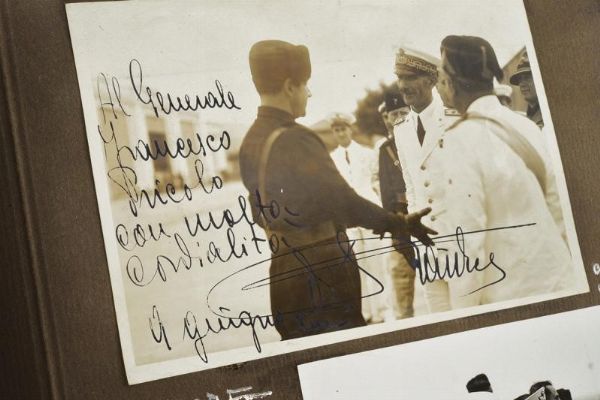 Al Generale
Francesco
Pricolo
con molta
cordialità
9 giugno